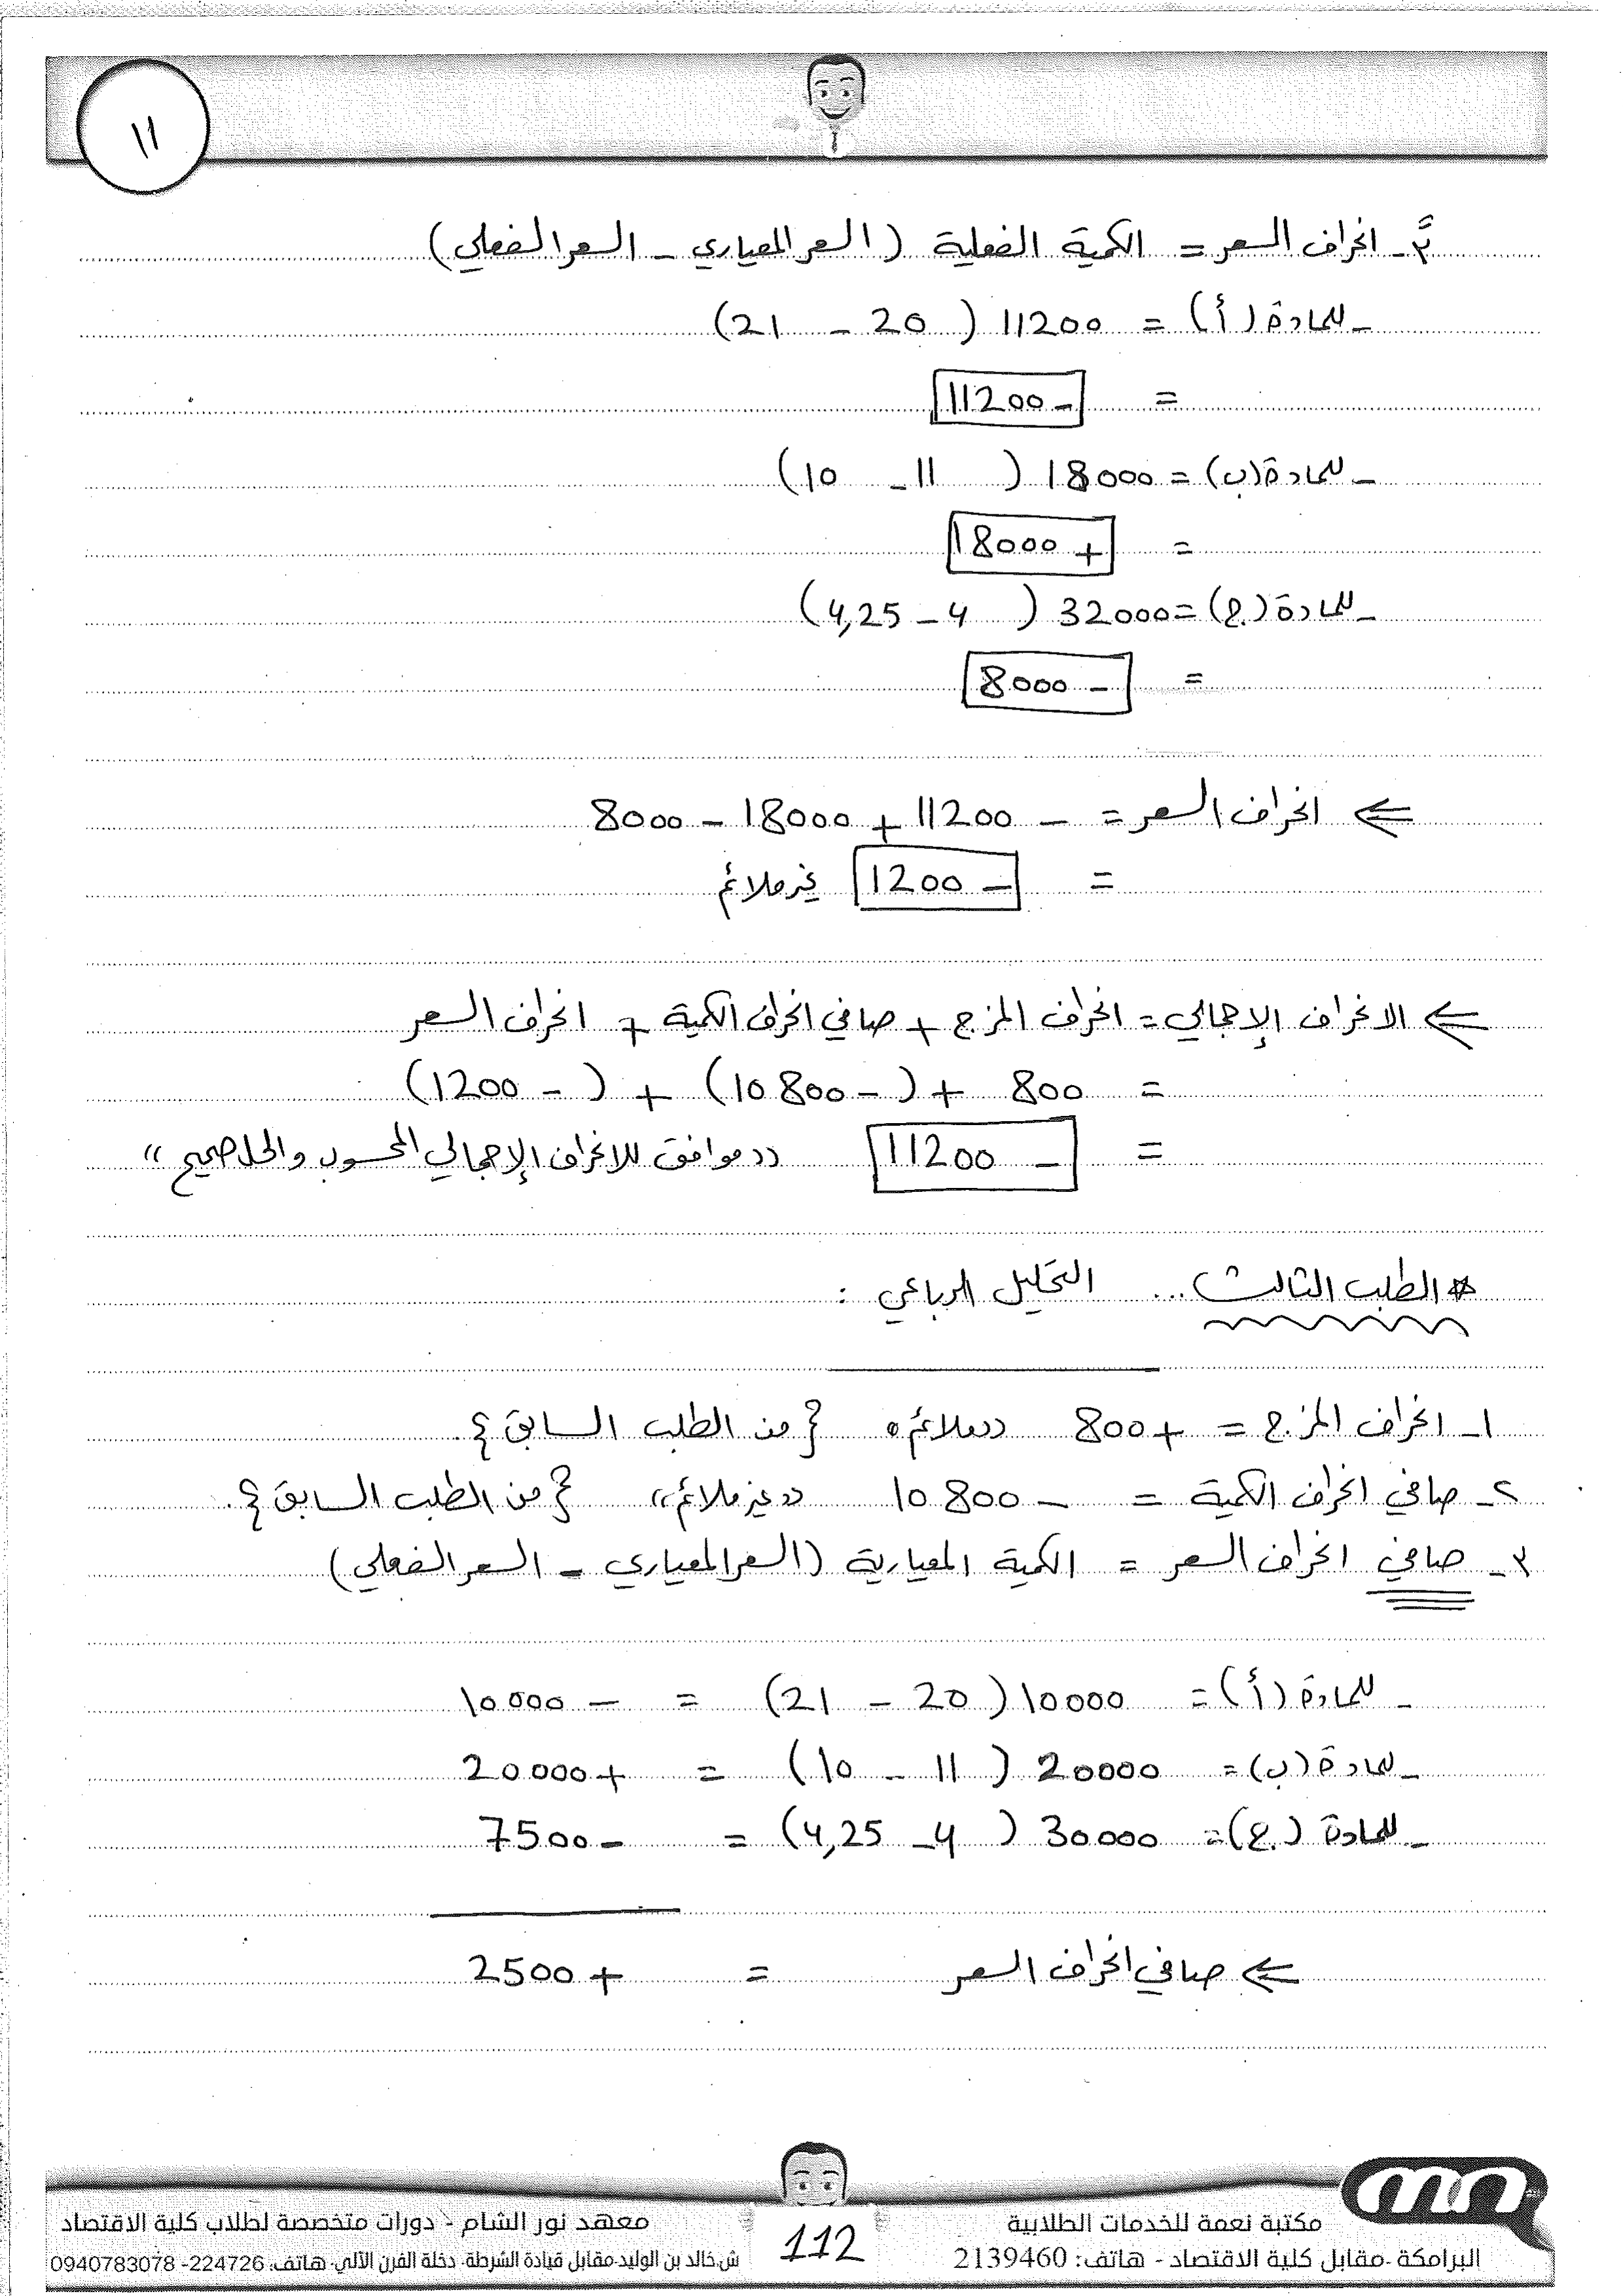 ١١
٣ً- انحراف السعر = الكمية الفعلية (السعر المعياري - السعر الفعلي)
- للمادة (أ) = 11200 (20 - 21)
= - 11200
- للمادة (ب) = 18000 (11 - 10)
= + 18000
- للمادة (ج) = 32000 (4 - 4,25)
= - 8000
⇐ انحراف السعر = - 11200 + 18000 - 8000
= - 1200 غير ملائم
⇐ الانحراف الإجمالي = انحراف المزج + صافي انحراف الكمية + انحراف السعر
= 800 + (- 10800) + (- 1200)
= - 11200 ((موافق للانحراف الإجمالي المحسوب والحل صحيح))
* الطلب الثالث ... التحليل الرباعي :
١- انحراف المزج = + 800 ((ملائم)) {من الطلب السابق}.
٢- صافي انحراف الكمية = - 10800 ((غير ملائم)) {من الطلب السابق}.
٣- صافي انحراف السعر = الكمية المعيارية (السعر المعياري - السعر الفعلي)
- للمادة (أ) = 10000 (20 - 21) = - 10000
- للمادة (ب) = 20000 (11 - 10) = + 20000
- للمادة (ج) = 30000 (4 - 4,25) = - 7500
⇐ صافي انحراف السعر = + 2500
مكتبة نعمة للخدمات الطلابية
البرامكة -مقابل كلية الاقتصاد - هاتف: 2139460
112
معهد نور الشام - دورات متخصصة لطلاب كلية الاقتصاد
ش.خالد بن الوليد-مقابل قيادة الشرطة- دخلة الفرن الآلي- هاتف: 224726- 0940783078